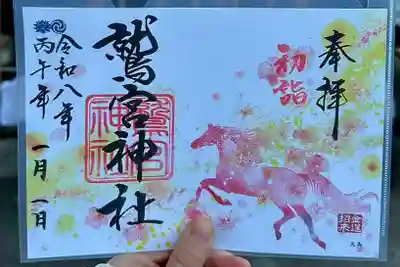 奉拝
初詣
鷲宮神社
令和八年
丙午年
一月一日
金運
招来